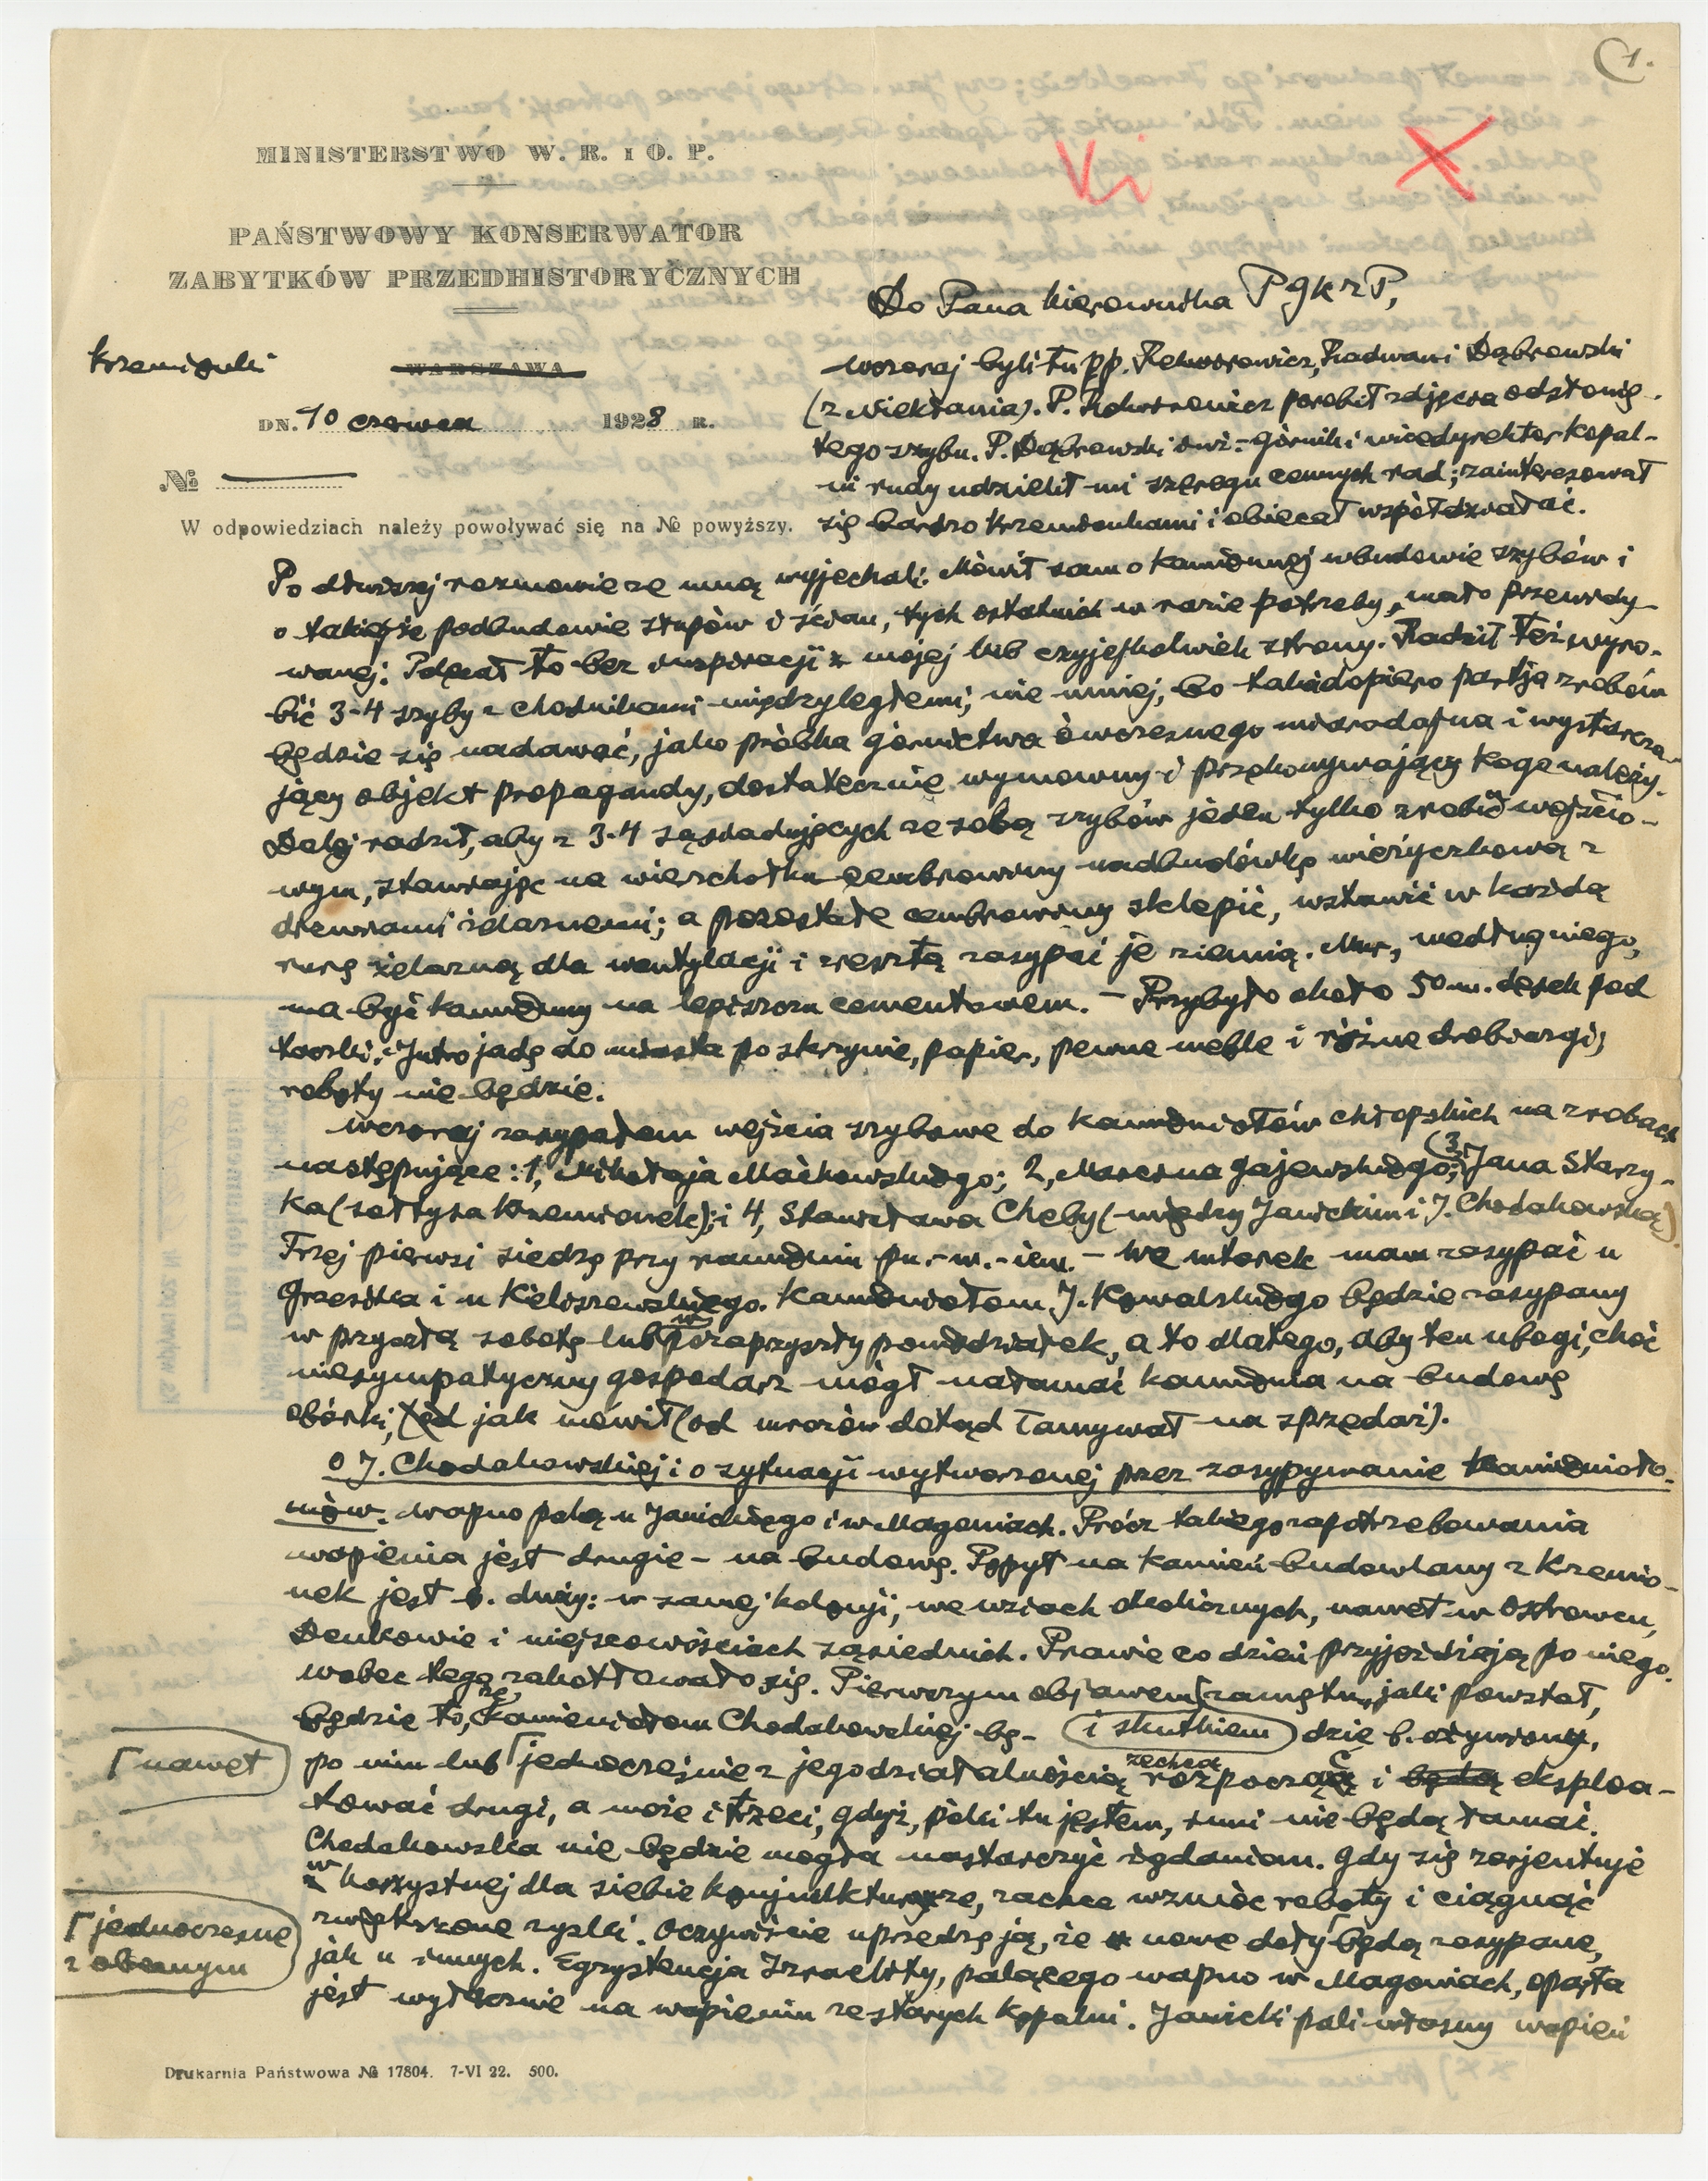 1.
Vi X
MINISTERSTWO W. R. i O. P.
PAŃSTWOWY KONSERWATOR
ZABYTKÓW PRZEDHISTORYCZNYCH
Do Pana Kierownika PGKZP,
Krzemionki
WARSZAWA
DN. 10 czerwca 1928 R.
№
W odpowiedziach należy powoływać się na № powyższy.
Wczoraj byli tu pp. Rekwirowicz, Radwan i Dąbrowski
(z Niekłania). P. Rekwirowicz porobił zdjęcia odsłonię-
tego szybu. P. Dąbrowski inż.-górnik i wicedyrektor kopal-
ni rudy udzielił mi szeregu cennych rad; zainteresował
się bardzo Krzemionkami i obiecał współdziałać.
Po dłuższej rozmowie ze mną wyjechali. Mówił sam o kamiennej wbudowie szybów i
o takiejże podbudowie stropów i ścian, tych ostatnich w razie potrzeby, mało przewidy-
wanej. Podał to bez inspiracji z mojej lub czyjejkolwiek strony. Radził też wyro-
bić 3-4 szyby z chodnikami międzyległemi, nie mniej, bo taka dopiero partja zrobów
będzie się nadawać, jako próbka górnictwa ówczesnego miarodajna i wystarcza-
jący objekt propagandy, dostatecznie wymowny i przekonywający kogo należy.
Dalej radził, aby z 3-4 sąsiadujących ze sobą szybów jeden tylko zrobić wejścio-
wym, stawiając na wierzchołku cembrowiny nadbudówkę wieżyczkową z
drzwiami żelaznemi; a pozostałe cembrowiny sklepić, wstawić w każdą
rurę żelazną dla wentylacji i zresztą zasypać je ziemią. Mur, według niego,
ma być kamienny na lepiszczu cementowem. – Przybyło około 50 m. desek pod
taczki. Jutro jadę do miasta po skrzynie, papier, pewne meble i różne drobiazgi;
roboty nie będzie.
Wczoraj zasypałem wejścia szybowe do kamieniołów chłopskich na zrobach
następujące: 1, Mikołaja Maćkowskiego; 2, Marcina Gajewskiego; 3, Jana Starzy-
ka (sołtysa Krzemionek); i 4, Stanisława Cheby (między Janickim i J. Chodakowską).
Trzej pierwsi siedzą przy ramieniu pn.-w.-iem. – We wtorek mam zasypać u
Grzesika i u Keliszewskiego. Kamieniołom J. Kowalskiego będzie zasypany
w przyszłą sobotę lub w poraprzyszły poniedziałek, a to dlatego, aby ten ubogi, choć
niesympatyczny gospodarz mógł nałamać kamienia na budowę
obórki, jak mówił (od mrozów dotąd łamywał na sprzedaż).
O J. Chodakowskiej i o sytuacji wytworzonej przez zasypywanie kamienioło-
mów. Wapno palą u Janickiego i w Magoniach. Prócz takiego zapotrzebowania
wapienia jest drugie – na budowę. Popyt na kamień budowlany z Krzemio-
nek jest b. duży: w samej kolonji, we wsiach okolicznych, nawet w Ostrowcu,
Denkowie i miejscowościach sąsiednich. Prawie co dzień przyjeżdżają po niego.
Wobec tego zakotłowało się. Pierwszym objawem zamętu, jaki powstał,
będzie to, że kamieniołom Chodakowskiej bę- (i skutkiem) dzie b. ożywiony,
⌈nawet
po nim lub ⌈jednocześnie z jego działalnością zechcą rozpocząć i będą eksploa-
tować drugi, a może i trzeci, gdyż, póki tu jestem, inni nie będą łamać.
Chodakowska nie będzie mogła nastarczyć żądaniom. Gdy się zorjentuje
w korzystnej dla siebie konjunkturze, zachce wzmóc roboty i ciągnąć
⌈jednocześnie
z obecnym
zwiększone zyski. Oczywiście uprzedzę ją, że nowe doły ⌈będą zasypane,
jak u innych. Egzystencja Izraelity, palącego wapno w Magoniach, oparta
jest wyłącznie na wapieniu ze starych kopalni. Janicki pali własny wapień
Drukarnia Państwowa № 17804. 7-VI 22. 500.